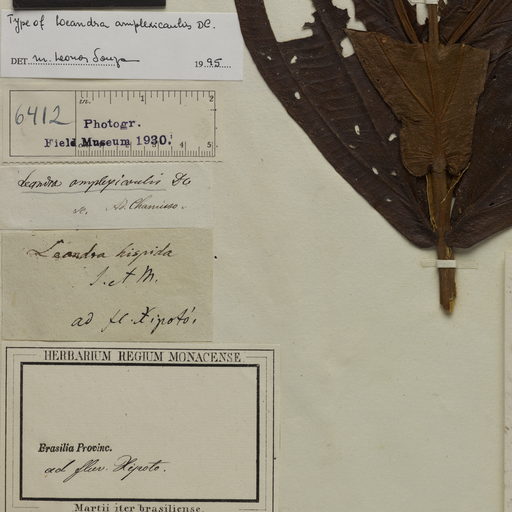 Type of Leandra amplexicaulis DC.
DET M. Leonor Souza 1995
6412
in. 1 2
Photogr.
Field Museum 1930.
5
Leandra amplexicaulis DC
Ad. Chamisso.
Leandra hispida
S. et M.
ad fl. Xipotó,
HERBARIUM REGIUM MONACENSE.
Brasilia Provinc.
ad fluv. Xipoto.
Martii iter brasiliense.